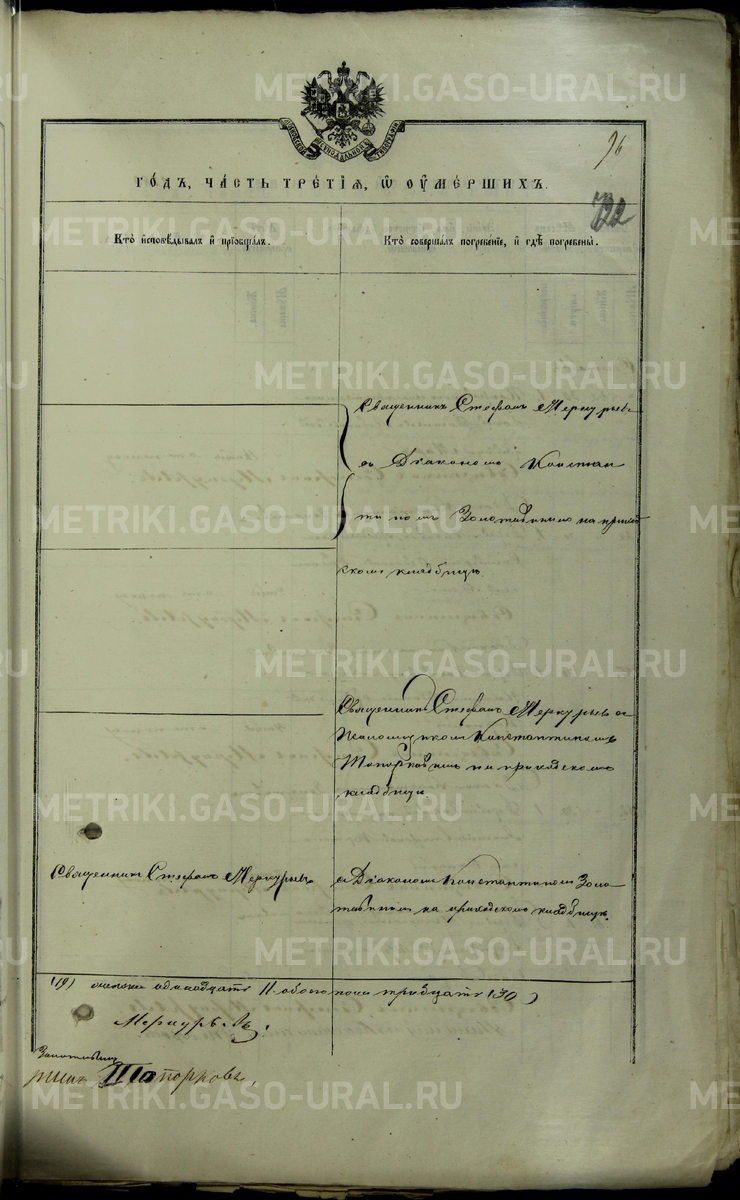 METRIKI.GASO-URAL.RU
96
ГОДЪ, ЧАСТЬ ТРЕТІЯ, Ѽ ОУМЕРШИХЪ.
722
Кто исповѣдывалъ и пріобщалъ.
Кто совершалъ погребеніе, и гдѣ погребены.
Священникъ Стефанъ Меркурьевъ
съ Діакономъ Констан
тиномъ Золотавинымъ на приход
скомъ кладбищѣ
Священникъ Стефанъ Меркурьевъ съ
Константиномъ
Топорковымъ на приходскомъ
кладбищѣ
Священникъ Стефанъ Меркурьевъ
съ Діакономъ Константиномъ Золо
тавинымъ на приходскомъ кладбищѣ.
(19) женска одинадцать 11. обоего пола тридцать (30)
Меркурьевъ.
Топорковъ,